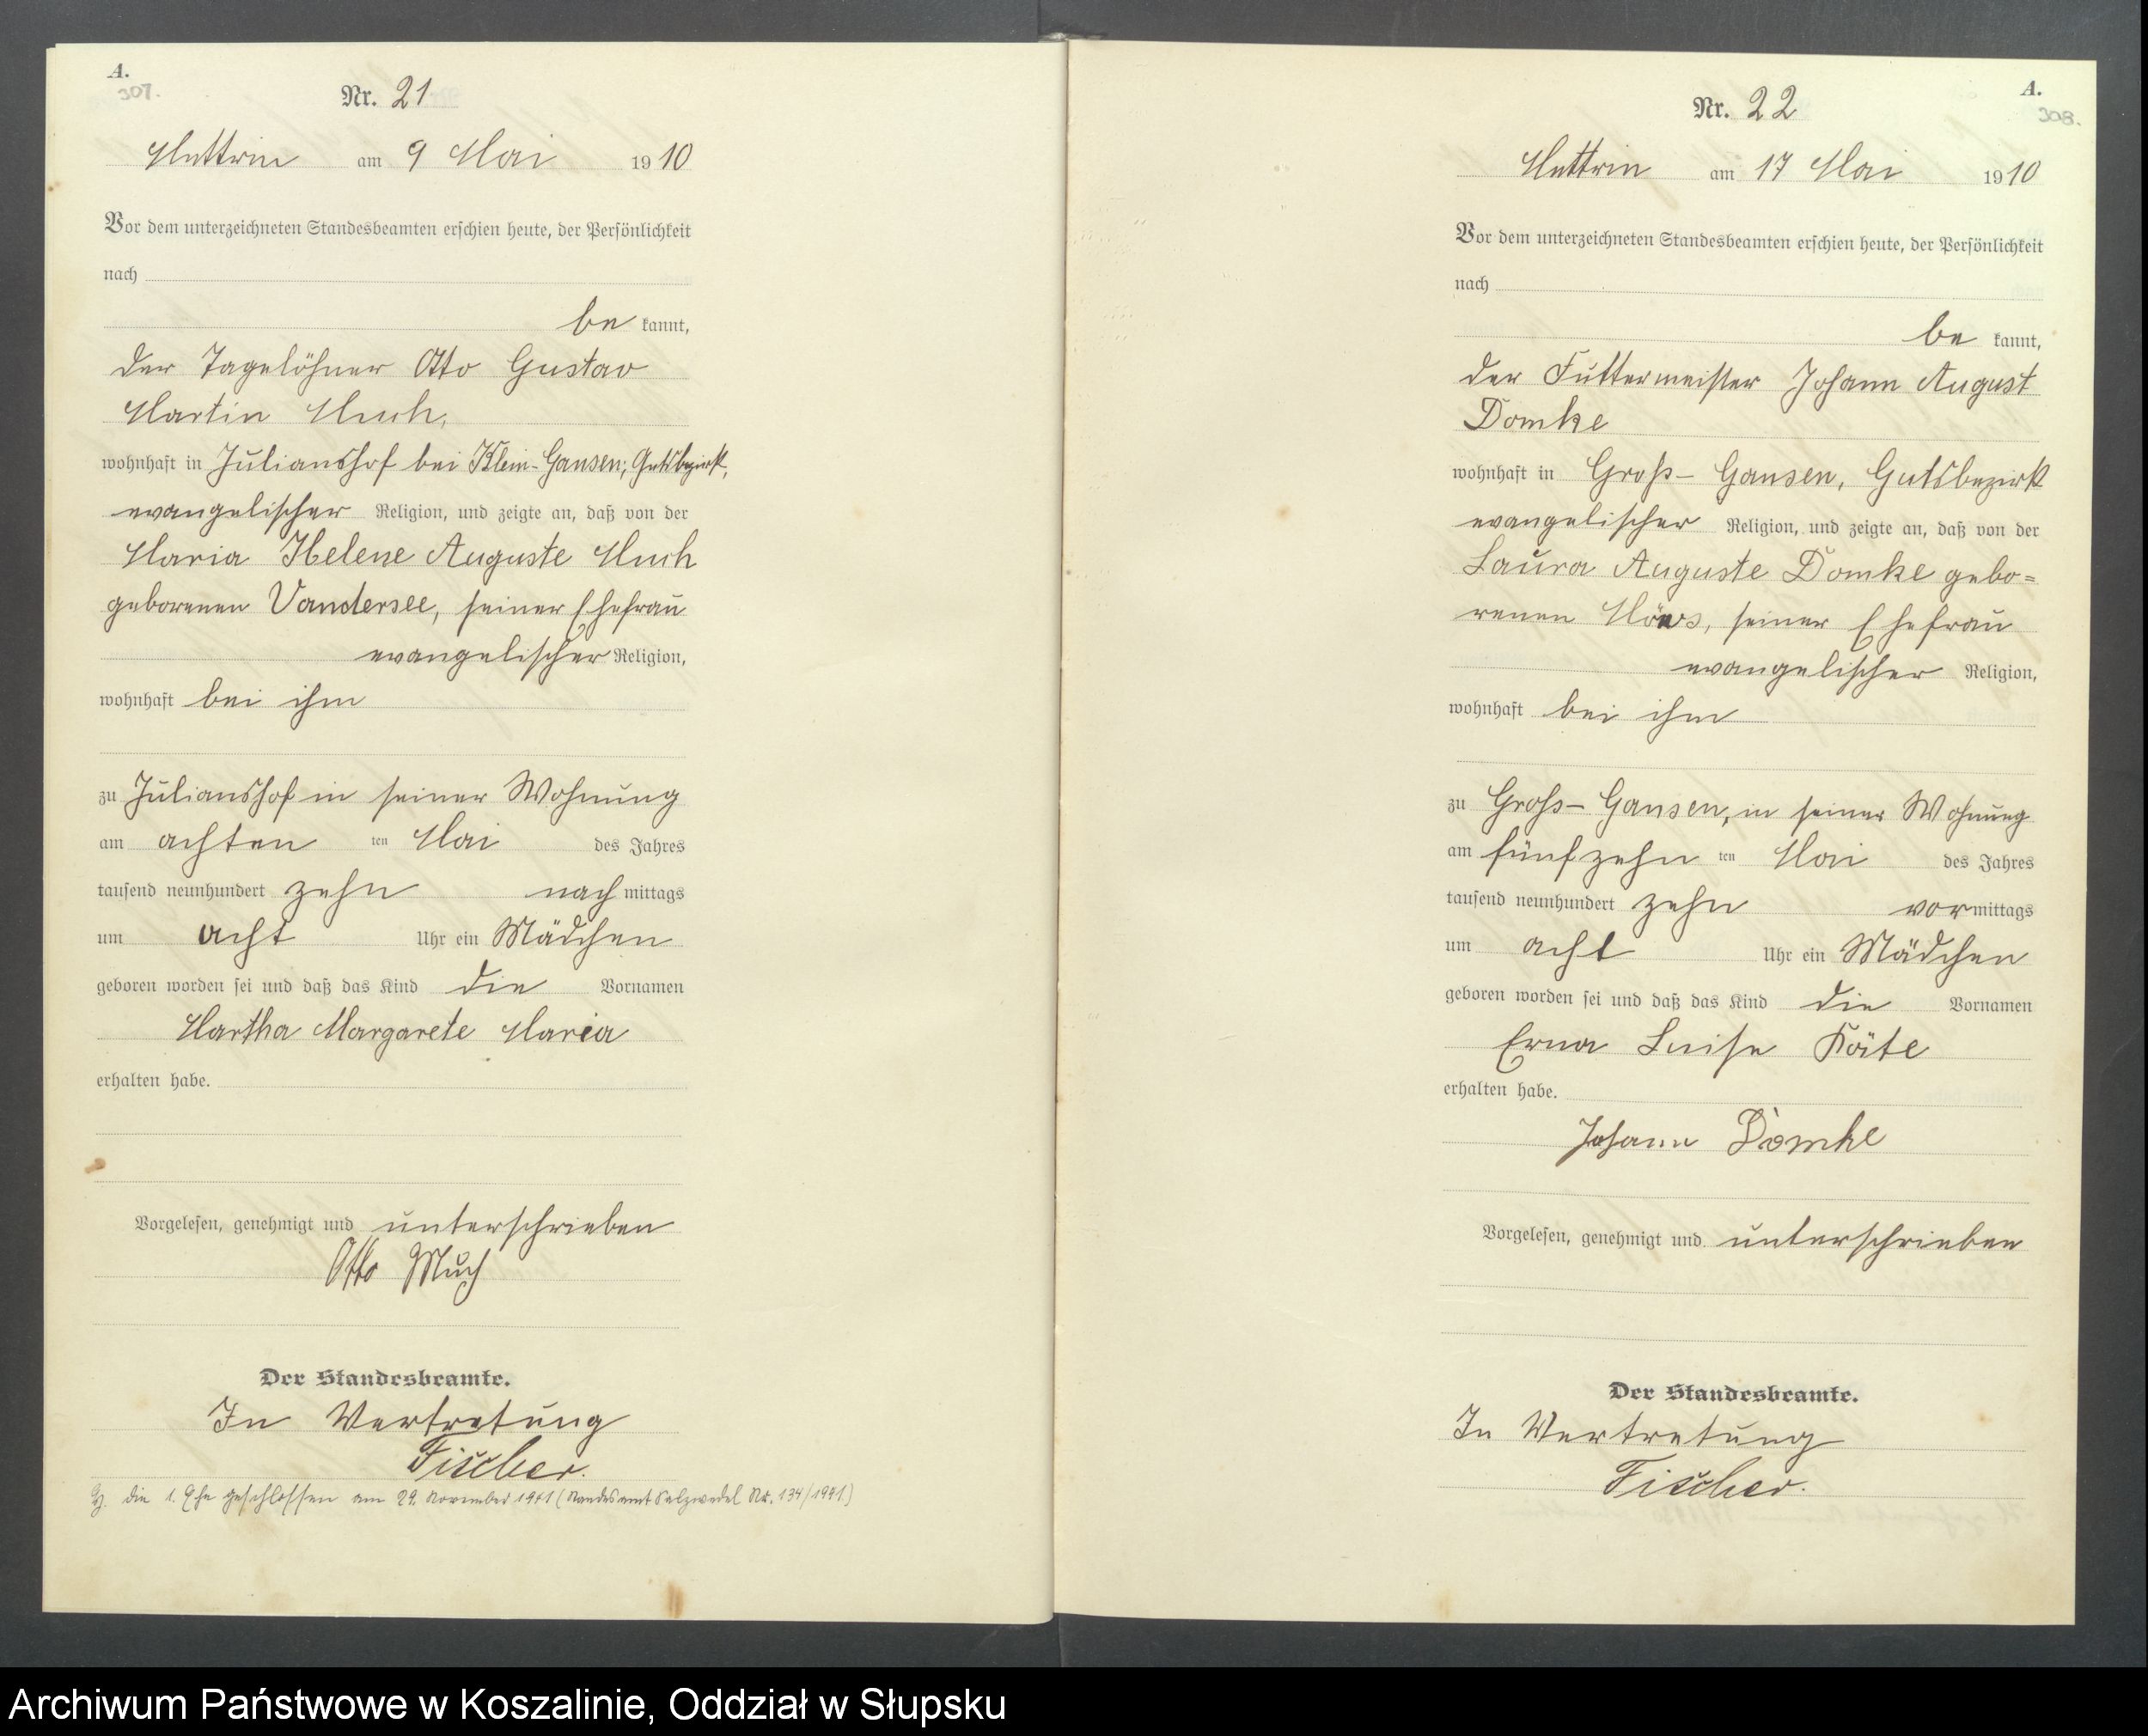 A.
307.
Nr. 21
Muttrin am 9 Mai 1910
Vor dem unterzeichneten Standesbeamten erschien heute, der Persönlichkeit
nach
be kannt,
der Tagelöhner Otto Gustav
Martin Much,
wohnhaft in Julianshof bei Klein-Gansen, Gutsbezirk,
evangelischer Religion, und zeigte an, daß von der
Maria Helene Auguste Much
geborenen Vandersee, seiner Ehefrau
evangelischer Religion,
wohnhaft bei ihm
zu Julianshof in seiner Wohnung
am achten ten Mai des Jahres
tausend neunhundert zehn nach mittags
um acht Uhr ein Mädchen
geboren worden sei und daß das Kind die Vornamen
Martha Margarete Maria
erhalten habe.
Vorgelesen, genehmigt und unterschrieben
Otto Much
Der Standesbeamte.
In Vertretung
Fischer.
die 1. Ehe geschlossen am 29. November 1941 (Standesamt Salzwedel Nr. 134/1941.)
A.
308.
Nr. 22
Muttrin am 17 Mai 1910
Vor dem unterzeichneten Standesbeamten erschien heute, der Persönlichkeit
nach
be kannt,
der Futtermeister Johann August
Domke
wohnhaft in Groß-Gansen, Gutsbezirk
evangelischer Religion, und zeigte an, daß von der
Laura Auguste Domke gebo=
renen seiner Ehefrau
evangelischer Religion,
wohnhaft bei ihm
zu Groß-Gansen, in seiner Wohnung
am fünfzehn ten Mai des Jahres
tausend neunhundert zehn vormittags
um acht Uhr ein Mädchen
geboren worden sei und daß das Kind die Vornamen
Erna Luise Käte
erhalten habe.
Johann Domke
Vorgelesen, genehmigt und unterschrieben
Der Standesbeamte.
In Vertretung
Fischer.
Archiwum Państwowe w Koszalinie, Oddział w Słupsku